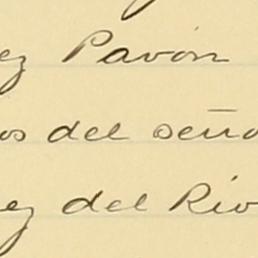 ez Pavón
os del seño
ez del Río